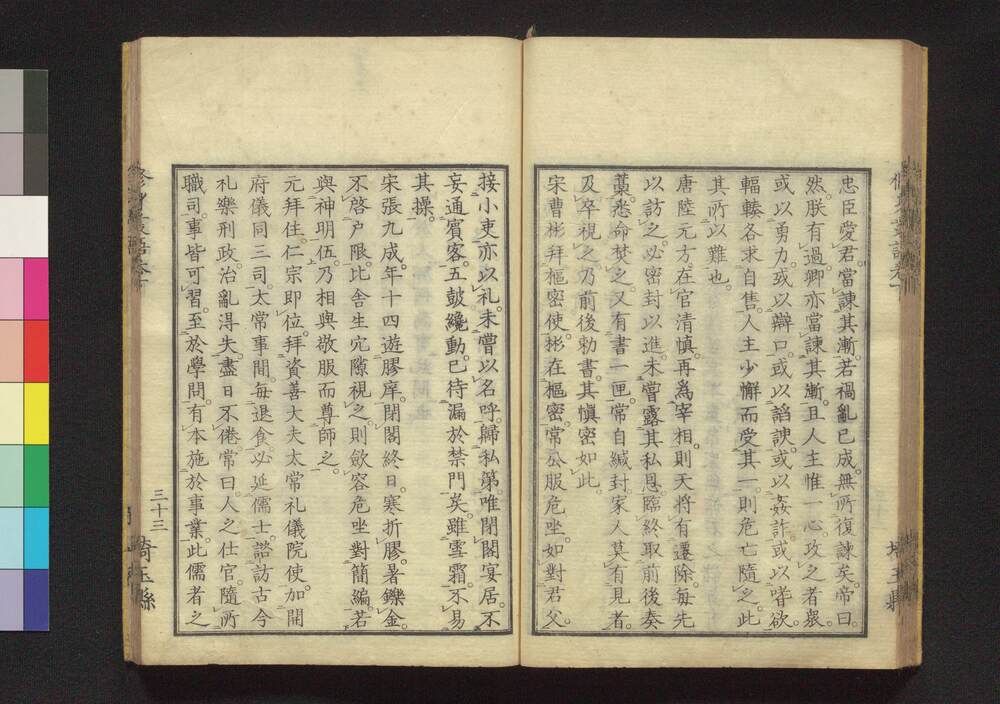 忠臣愛君。當諫其漸。若禍亂已成。無所復諫矣。帝曰。
然。朕有過。卿亦當諫其漸。且人主惟一心。攻之者衆。
或以勇力。或以辯口。或以諂諛。或以姦詐。或以嗜欲。
輻輳各求自售。人主少懈而受其一。則危亡隨之。此
其所以難也。
唐陸元方。在官清慎。再爲宰相。則天將有遷除。每先
以訪之。必密封以進。未嘗露其私恩。臨終取前後奏
藁。悉命焚之。又有書一匣。常自緘封。家人莫有見者。
及卒視之。乃前後勅書。其愼密如此。
宋曹彬拜樞密使。彬在樞密。常公服危坐。如對君父。
接小吏亦以礼。未嘗以名呼。歸私第。唯閉閤宴居。不
妄通賓客。五鼓纔動。已待漏於禁門矣。雖雪霜。不易
其操。
宋張九成。年十四遊膠庠。閉閤終日。寒折膠。暑鑠金。
不啓户限。比舎生宂隙視之。則斂容危坐。對簡編。若
與神明伍。乃相與敬服而尊師之。
元拜住。仁宗即位。拜資善大夫太常礼儀院使。加開
府儀同三司。太常事閒。毎退食。必延儒士。諮訪古今
礼樂刑政。治亂淂失。盡日不倦。常曰人之仕官。隨所
職司。事皆可習。至於學問。有本施於事業。此儒者之
三十三
埼玉縣